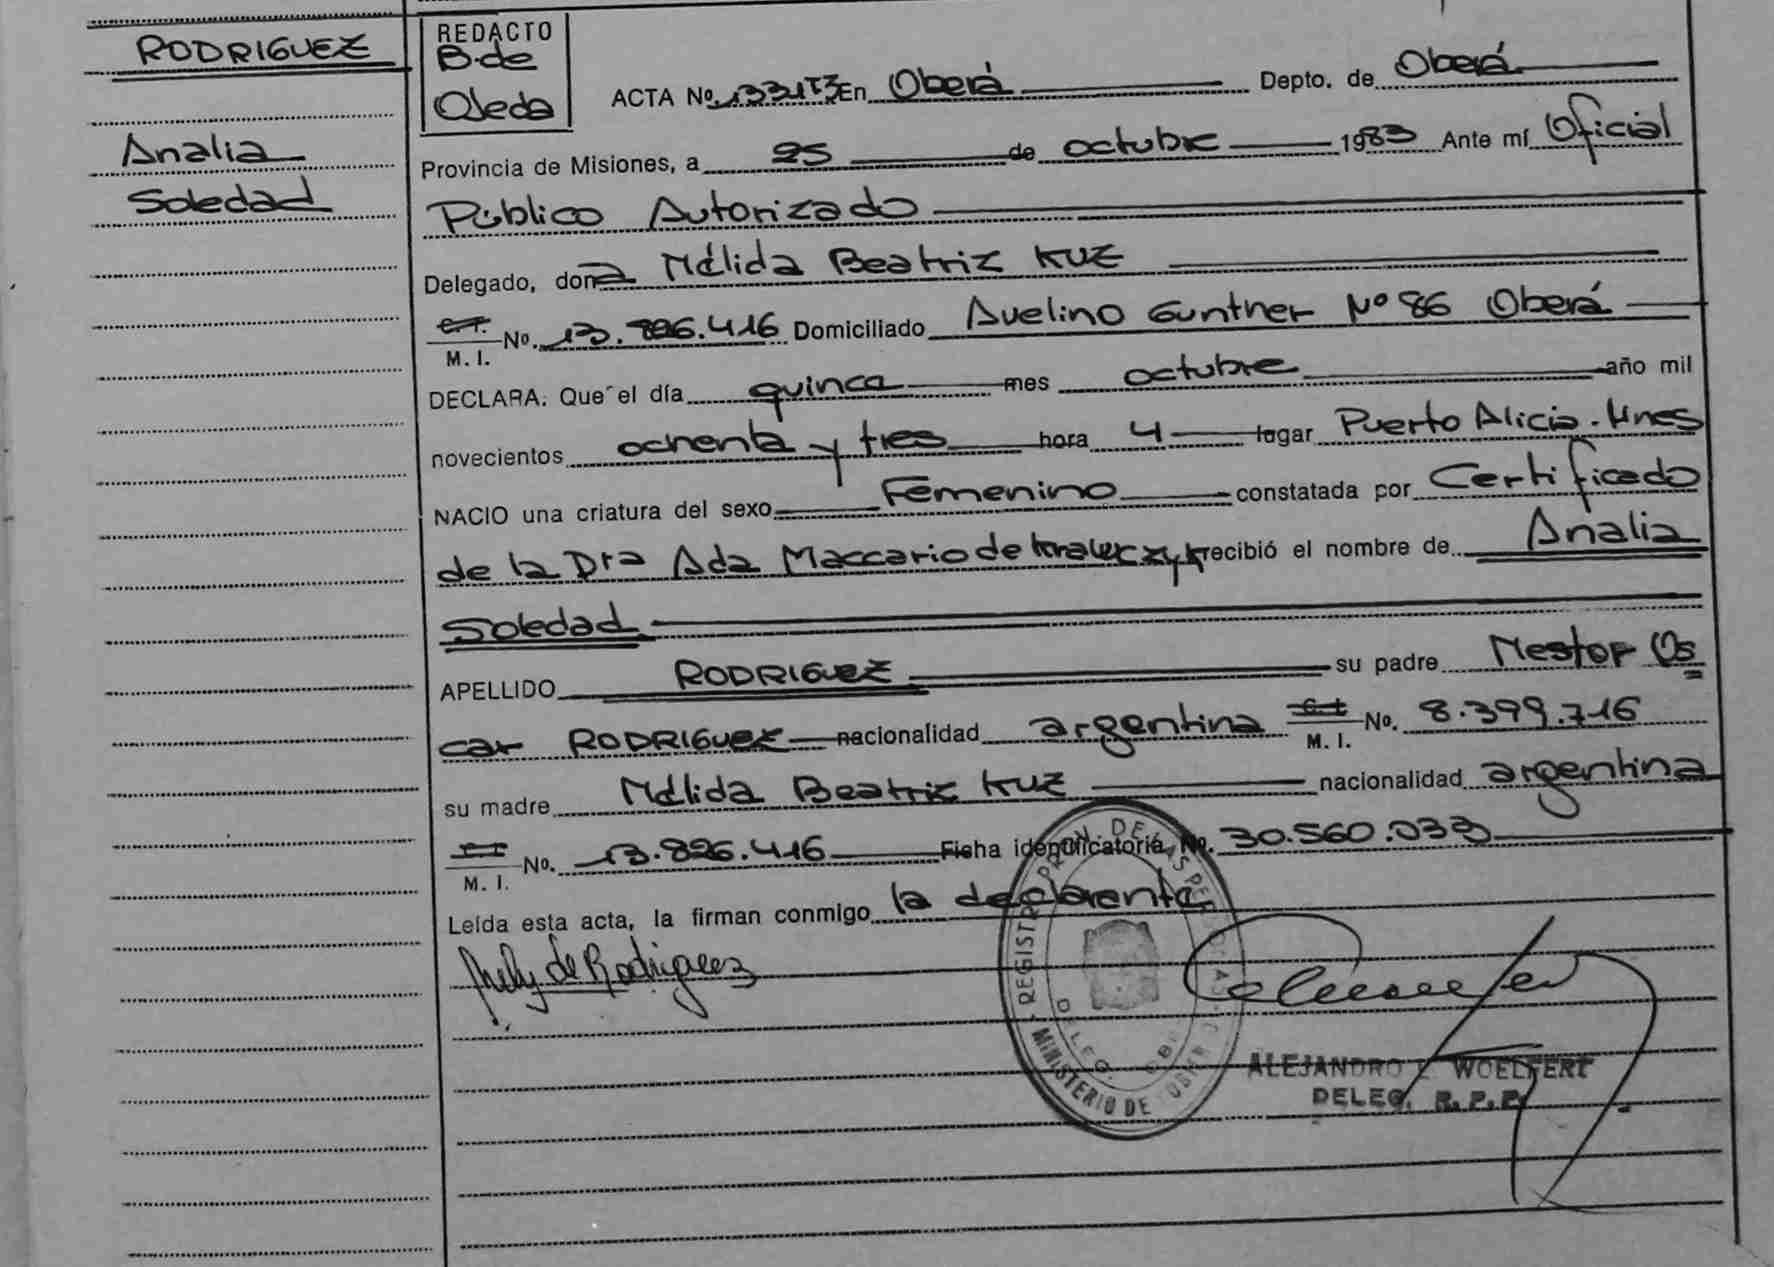 RODRIGUEZ
Analia
Soledad
REDACTO
B. de
Ojeda
ACTA No. 1331T3 En Oberá Depto. de Oberá
Provincia de Misiones, a 25 de octubre 1983 Ante mí Oficial
Público Autorizado
Delegado, dona Nélida Beatriz KUZ
No. 13.826.416 Domiciliado Avelino Gunther Nº 86 Oberá
M. I.
DECLARA: Que el día quince mes octubre año mil
novecientos ochenta y tres hora 4 lugar Puerto Alicia. Mnes
NACIO una criatura del sexo Femenino constatada por Certificado
de la Dra Ada Maccario de Krawczyk recibió el nombre de Analia
Soledad
APELLIDO RODRIGUEZ su padre Nestor Os
car RODRIGUEZ nacionalidad argentina No. 8.399.716
M. I.
su madre Nélida Beatriz KUZ nacionalidad argentina
No. 13.826.416 Ficha identificatoria No. 30.560.033
M. I.
Leída esta acta, la firman conmigo la declarante
Nely de Rodriguez
REGISTRO PROV. DE LAS PERSONAS
MINISTERIO DE GOBIERNO
DELEG. OBERA
ALEJANDRO WOELFERT
DELEG. R. P. P.